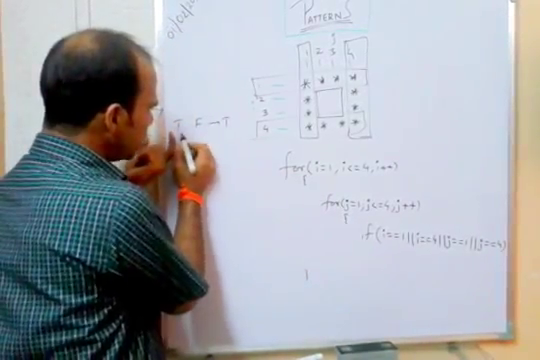 01/02/20
PATTERNS
j
1 2 3 4
* * * *
2 — * *
3 — * *
4 — * * * *
T F → T
for(i=1, i<=4, i++)
{
for(j=1, j<=4, j++)
{
if(i==1||i==4||j==1||j==4)